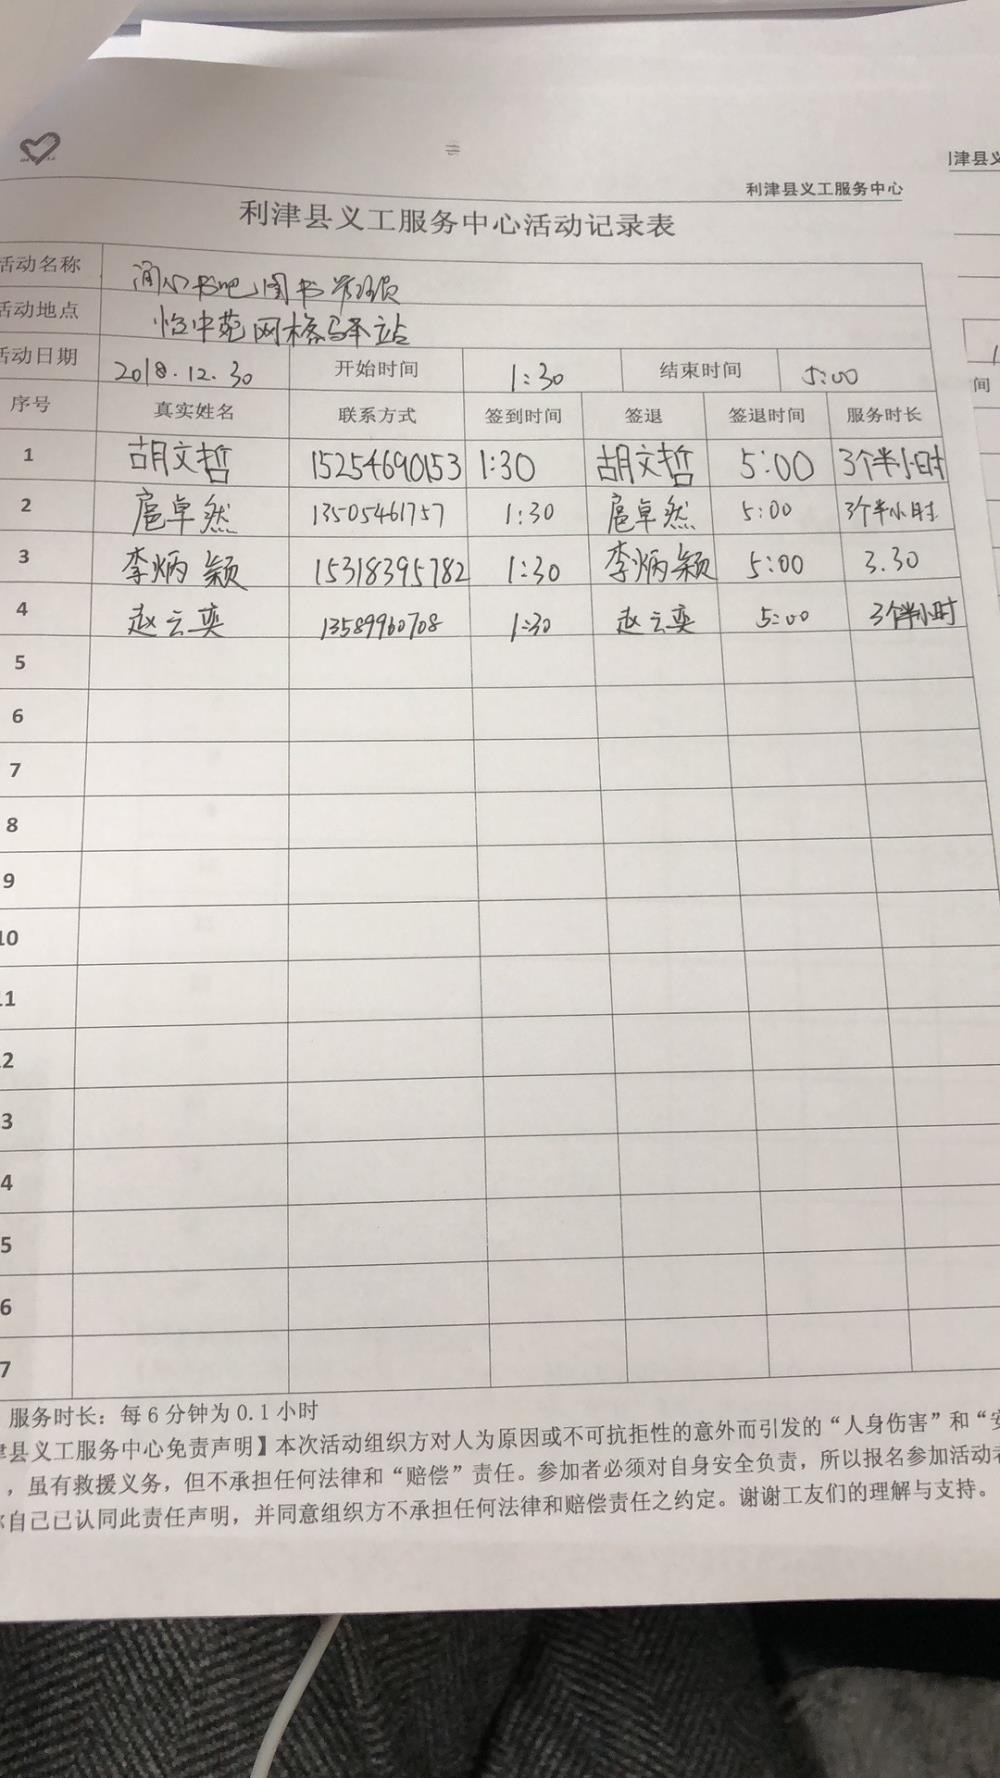 利津县义
利津县义工服务中心
利津县义工服务中心活动记录表
活动名称 润心书吧图书管理员
活动地点 怡中苑网格驿站
活动日期 2018.12.30 开始时间 1:30 结束时间 5:00
序号 真实姓名 联系方式 签到时间 签退 签退时间 服务时长
1 胡文哲 15254690153 1:30 胡文哲 5:00 3个半小时
2 扈卓然 13505461757 1:30 扈卓然 5:00 3个半小时
3 李炳颖 15318395782 1:30 李炳颖 5:00 3.30
4 赵云奕 13589960708 1:30 赵云奕 5:00 3个半小时
5
6
7
8
9
10
11
2
3
4
5
6
7
服务时长：每6分钟为0.1小时
津县义工服务中心免责声明】本次活动组织方对人为原因或不可抗拒性的意外而引发的“人身伤害”和“安
，虽有救援义务，但不承担任何法律和“赔偿”责任。参加者必须对自身安全负责，所以报名参加活动者
你自己已认同此责任声明，并同意组织方不承担任何法律和赔偿责任之约定。谢谢工友们的理解与支持。